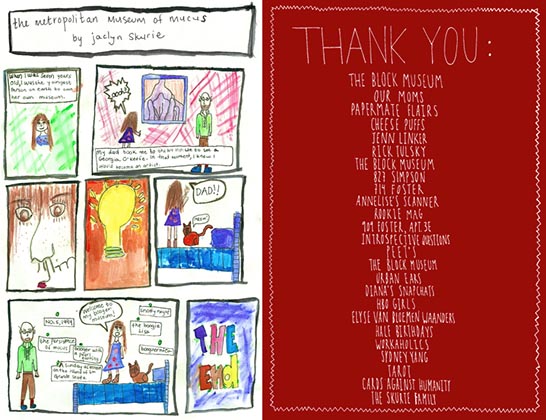 the metropolitan Museum of Mucus
by jaclyn Skurie
When I was seven years
old, I was the youngest
person on earth to own
her own museum.
oooh!
My dad took me to the Art Institute to see a
Georgia O'Keefe. In that moment, I knew I
would become an artist.
DAD!!
meow
NO. 5, 1949
the persistence
of mucus
booger with
a pearl
earring
A Sunday afternoon
on the island of la
Grande
Welcome to
my booger
museum!
snotty night
the boogie
lisa
THE
END
THANK YOU:
THE BLOCK MUSEUM
OUR MOMS
PAPERMATE FLAIRS
CHEESE PUFFS
JENN LINKER
RICK TULSKY
THE BLOCK MUSEUM
823 SIMPSON
714 FOSTER
ANNELISE'S SCANNER
ROOKIE MAG
909 FOSTER, APT. 3E
INTROSPECTIVE QUESTIONS
PEET'S
THE BLOCK MUSEUM
URBAN EARS
DIANA'S SNAPCHATS
HBO GIRLS
ELYSE VAN BLOEMEN WAANDERS
HALF BIRTHDAYS
WORKAHOLICS
SYDNEY YANG
TAROT
CARDS AGAINST HUMANITY
THE SKURIE FAMILY